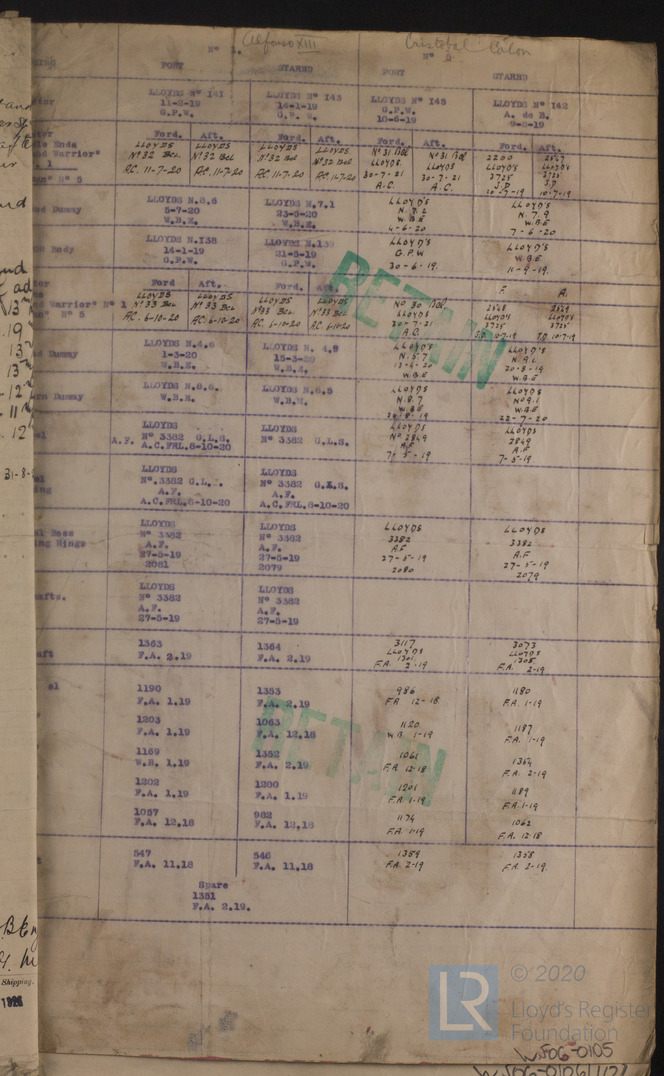 Alfonso XIII Cristobal Colon
Nº 1. Nº 2
PORT STARBD PORT STARBD
LLOYDS Nº 141 LLOYDS Nº 143 LLOYDS Nº 145 LLOYDS Nº 142
11-2-19 14-1-19 G.P.W. A. de B.
G.P.W. G.P.W. 10-6-19 9-5-19
Ford. Aft. Ford. Aft. Ford. Aft. Ford. Aft.
LLOYDS LLOYDS LLOYDS LLOYDS Nº 31 Bel Nº 31 Bel 2200 2547
Nº 32 Bel Nº 32 Bel Nº 32 Bel Nº 32 Bel LLOYDS LLOYDS LLOYDS LLOYDS
A.C. 11-7-20 A.C. 11-7-20 A.C. 11-7-20 A.C. 11-7-20 30-7-21 30-7-21 3725 3725
A.C. A.C. J.D J.D
10-7-19 10-7-19
Dummy LLOYDS N.6,6 LLOYDS N.7,1 LLOYD'S LLOYD'S
5-7-20 23-5-20 N.7.2 N.7,9
W.B.E. W.B.E. W.B.E W.B.E
4-6-20 7-6-20
Body LLOYDS N.138 LLOYDS N.139 LLOYD'S LLOYD'S
14-1-19 21-5-19 G.P.W W.B.E
G.P.W. G.P.W. 30-6-19. 11-9-19.
Ford Aft. Ford Aft. F. A.
Warrior" Nº 1 LLOYDS LLOYDS LLOYDS LLOYDS Nº 30 Bel 2548 2549
Nº 5 Nº 33 Bel Nº 33 Bel Nº 33 Bel Nº 33 Bel LLOYDS LLOYDS LLOYDS
A.C. 6-10-20 A.C. 6-10-20 A.C. 6-10-20 A.C. 6-10-20 30-7-21 3725 3725
A.C. J.D. 10-7-19 J.D. 10-7-19
Dummy LLOYDS N.4,6 LLOYDS N. 4,9 LLOYD'S LLOYD'S
1-3-20 15-3-20 N.5.7
W.B.E. W.B.E. W.B.E 20-8-19
W.B.E
Dummy LLOYDS N.8,6. LLOYDS N.6,5 LLOYDS LLOYDS
W.B.E. W.B.E. N.8.7 Nº 9.1
W.B.E W.B.E
22-7-20
LLOYDS LLOYDS LLOYDS LLOYDS
Nº 3382 G.L.S. Nº 3382 G.L.S. Nº 2849 2849
A.F. A.C.FRL.8-10-20 A.F A.F
7-5-19 7-5-19
LLOYDS LLOYDS
Nº.3382 G.L. Nº 3382 G.L.S.
A.F. A.F.
A.C.FRL.8-10-20 A.C.FRL.8-10-20
Boss LLOYDS LLOYDS LLOYDS LLOYDS
Rings Nº 3382 Nº 3382 3382 3382
A.F. A.F. A.F A.F
27-5-19 27-5-19 27-5-19 27-5-19
2081 2079 2080 2079
LLOYDS LLOYDS
Nº 3382 Nº 3382
A.F. A.F.
27-5-19 27-5-19
1363 1364 3117 3073
F.A. 2.19 F.A. 2.19 LLOYDS LLOYDS
1301 1305
F.A. 2-19 F.A. 2-19
1190 1353 986 1180
F.A. 1.19 F.A. 2.19 F.A. 12-18 F.A. 1-19
1203 1063 1120 1187
F.A. 1.19 F.A. 12.18 W.B. 1-19 F.A. 1-19
1169 1352 1061 1354
W.B. 1.19 F.A. 2.19 F.A. 12-18 F.A. 2-19
1202 1200 1201 1189
F.A. 1.19 F.A. 1.19 F.A. 1-19 F.A. 1-19
1057 982 1174 1062
F.A. 12.18 F.A. 12.18 F.A. 1-19 F.A. 12-18
547 546 1359 1358
F.A. 11.18 F.A. 11.18 F.A. 2-19 F.A. 2-19
Spare
1351
F.A. 2.19.
RETAIN
RETAIN
31-8-
Shipping.
LR © 2020
Lloyd's Register
Foundation
W506-0105